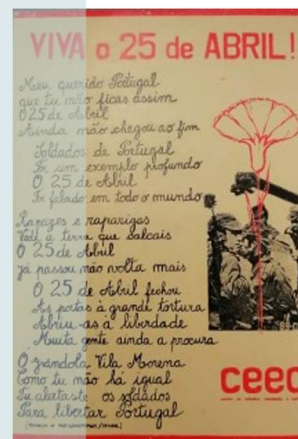 VIVA o 25 de ABRIL!
Meu querido Portugal
que tu não ficas assim
O 25 de Abril
Ainda não chegou ao fim
Soldados de Portugal
Foi um exemplo profundo
O 25 de Abril
Foi falado em todo o mundo
Rapazes e raparigas
Vede a terra que calcais
O 25 de Abril
já passou não volta mais
O 25 de Abril fechou
As portas à grande tortura
Abriu-as à liberdade
Muita gente ainda a procura
O grandola Vila Morena
Como tu não há igual
Tu alertaste os soldados
Para libertar Portugal
ceec